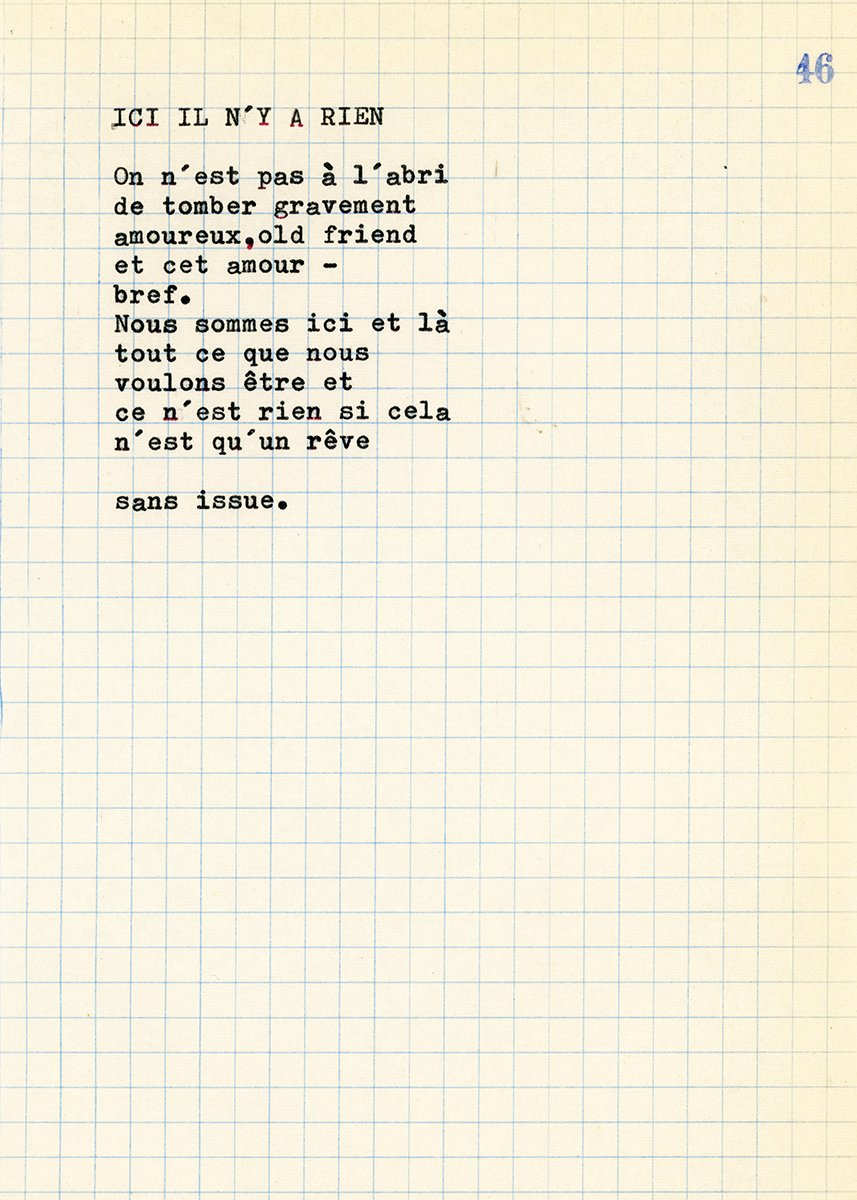 46
ICI IL N´Y A RIEN
On n´est pas à l´abri
de tomber gravement
amoureux,old friend
et cet amour -
bref.
Nous sommes ici et là
tout ce que nous
voulons être et
ce n´est rien si cela
n´est qu´un rêve
sans issue.